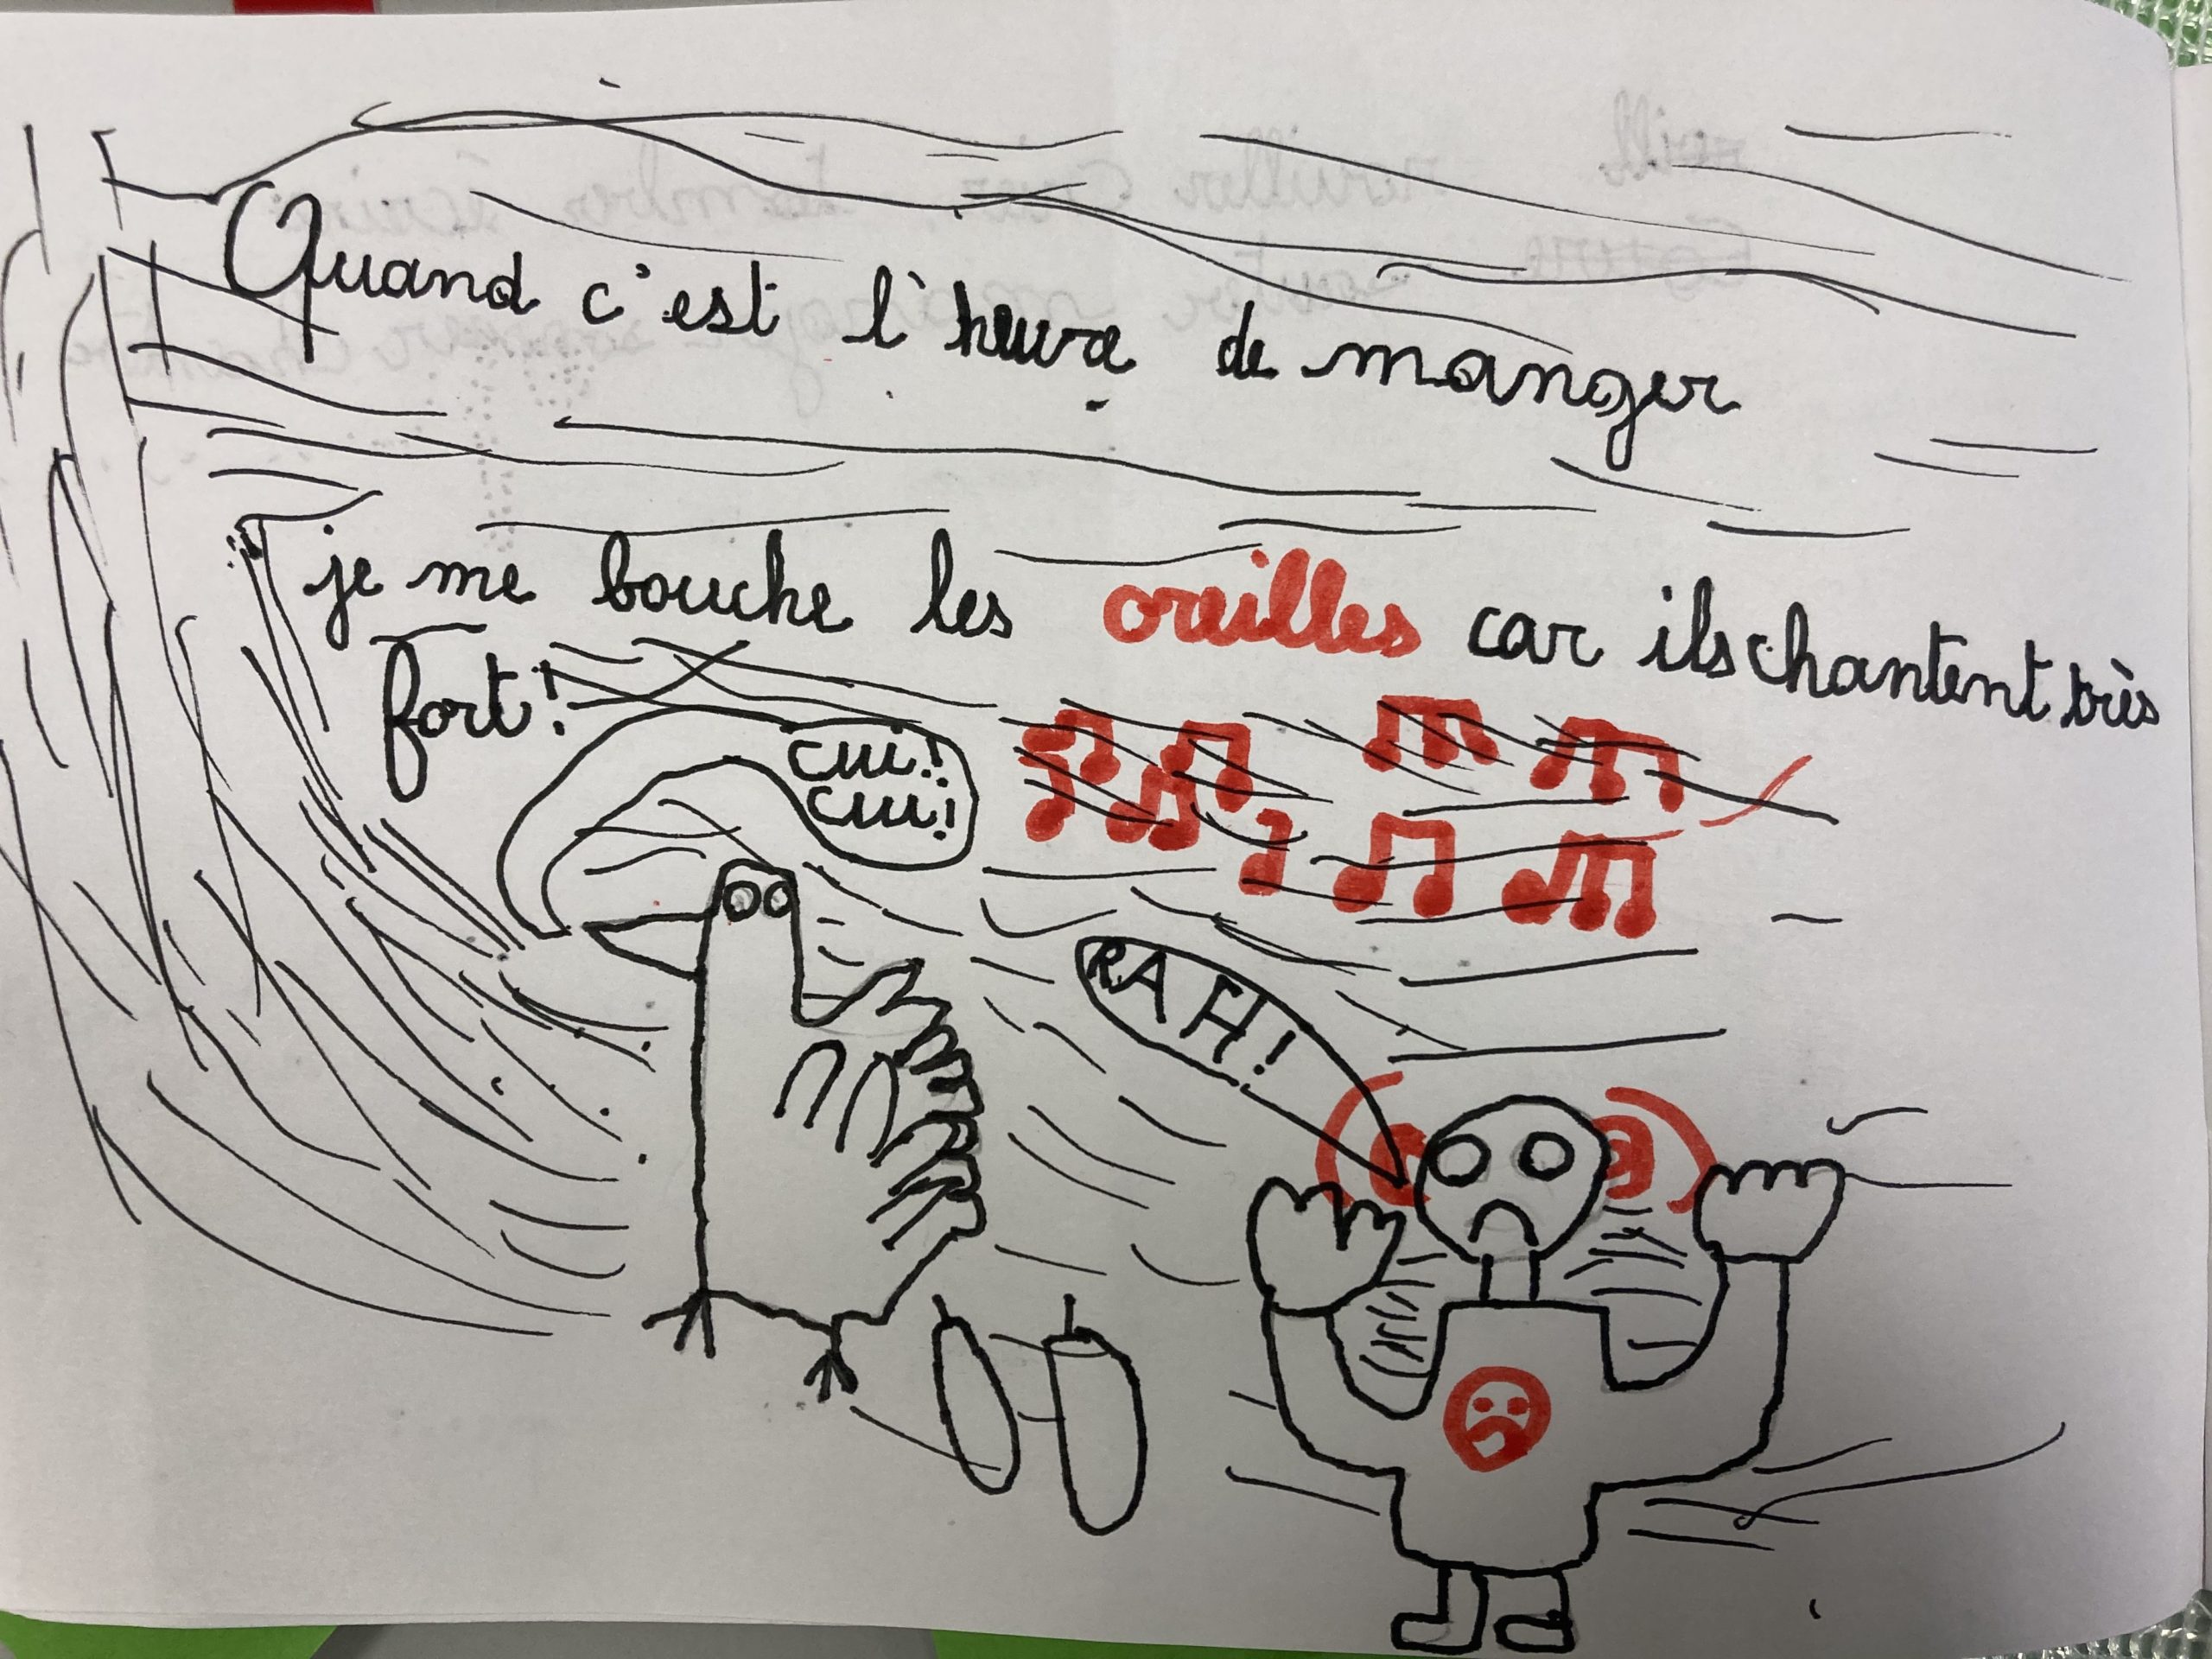 Quand c'est l'heure de manger
je me bouche les oreilles car ils chantent très
fort!
cui!
cui!
RAH!